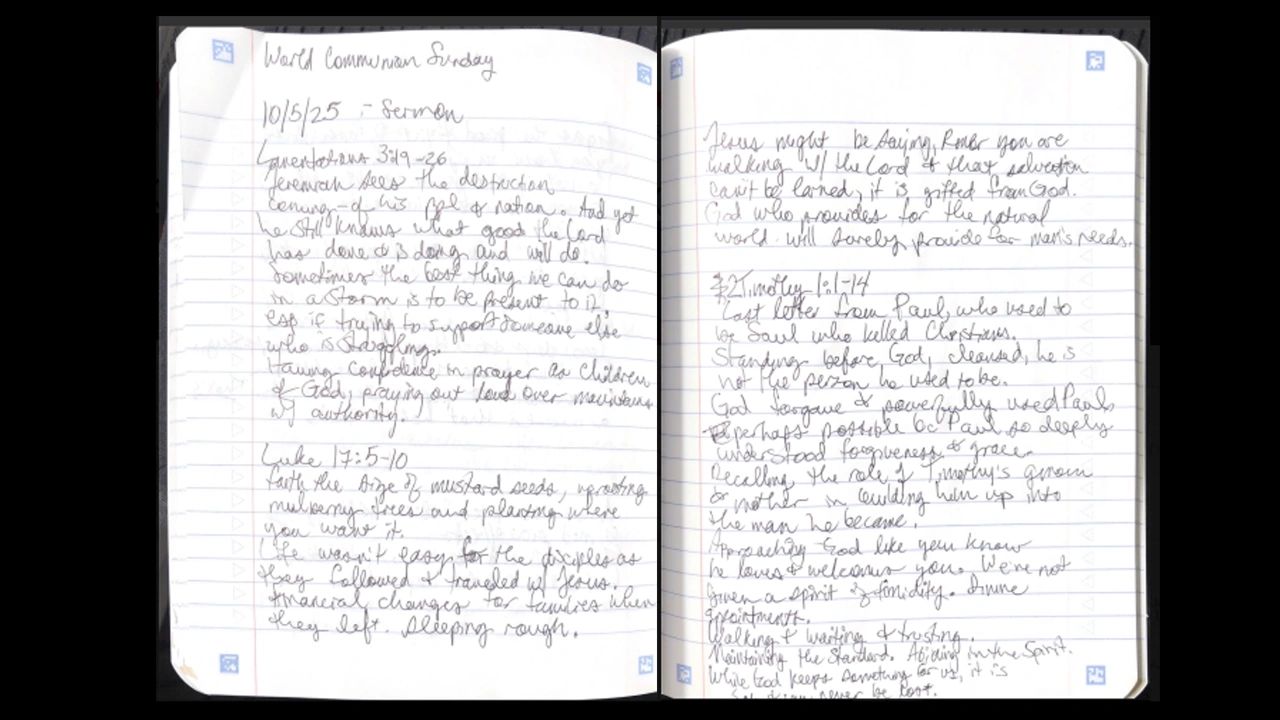 World Communion Sunday
10/5/25 - Sermon
Lamentations 3:19-26
Jeremiah sees the destruction
coming of his ppl & nation. And yet
he still knows what good the Lord
has done & is doing and will do.
Sometimes the best thing we can do
in a storm is to be present to it,
esp if trying to support someone else
who is struggling.
Having confidence in prayer as children
of God, praying out loud over mountains
w/ authority.
Luke 17:5-10
Faith the size of mustard seeds, uprooting
mulberry trees and planting where
you want it.
Life wasn't easy for the disciples as
they followed & traveled w/ Jesus.
Financial changes for families when
they left. Sleeping rough.
Jesus might be saying, Rmbr you are
walking w/ the Lord & that salvation
can't be earned, it is gifted from God.
God who provides for the natural
world will surely provide for man's needs.
2 Timothy 1:1-14
Last letter from Paul, who used to
be Saul who killed Christians.
Standing before God, cleansed, he is
not the person he used to be.
God forgave & powerfully used Paul,
perhaps possible bc Paul so deeply
understood forgiveness & grace.
Recalling the role of Timothy's gmom
& mother in building him up into
the man he became.
Approaching God like you know
he loves & welcomes you. We're not
given a spirit of timidity. Divine
appointments.
Walking & waiting & trusting.
Maintaining the Standard. Abiding in the Spirit.
While God keeps something for us, it is
never be lost.